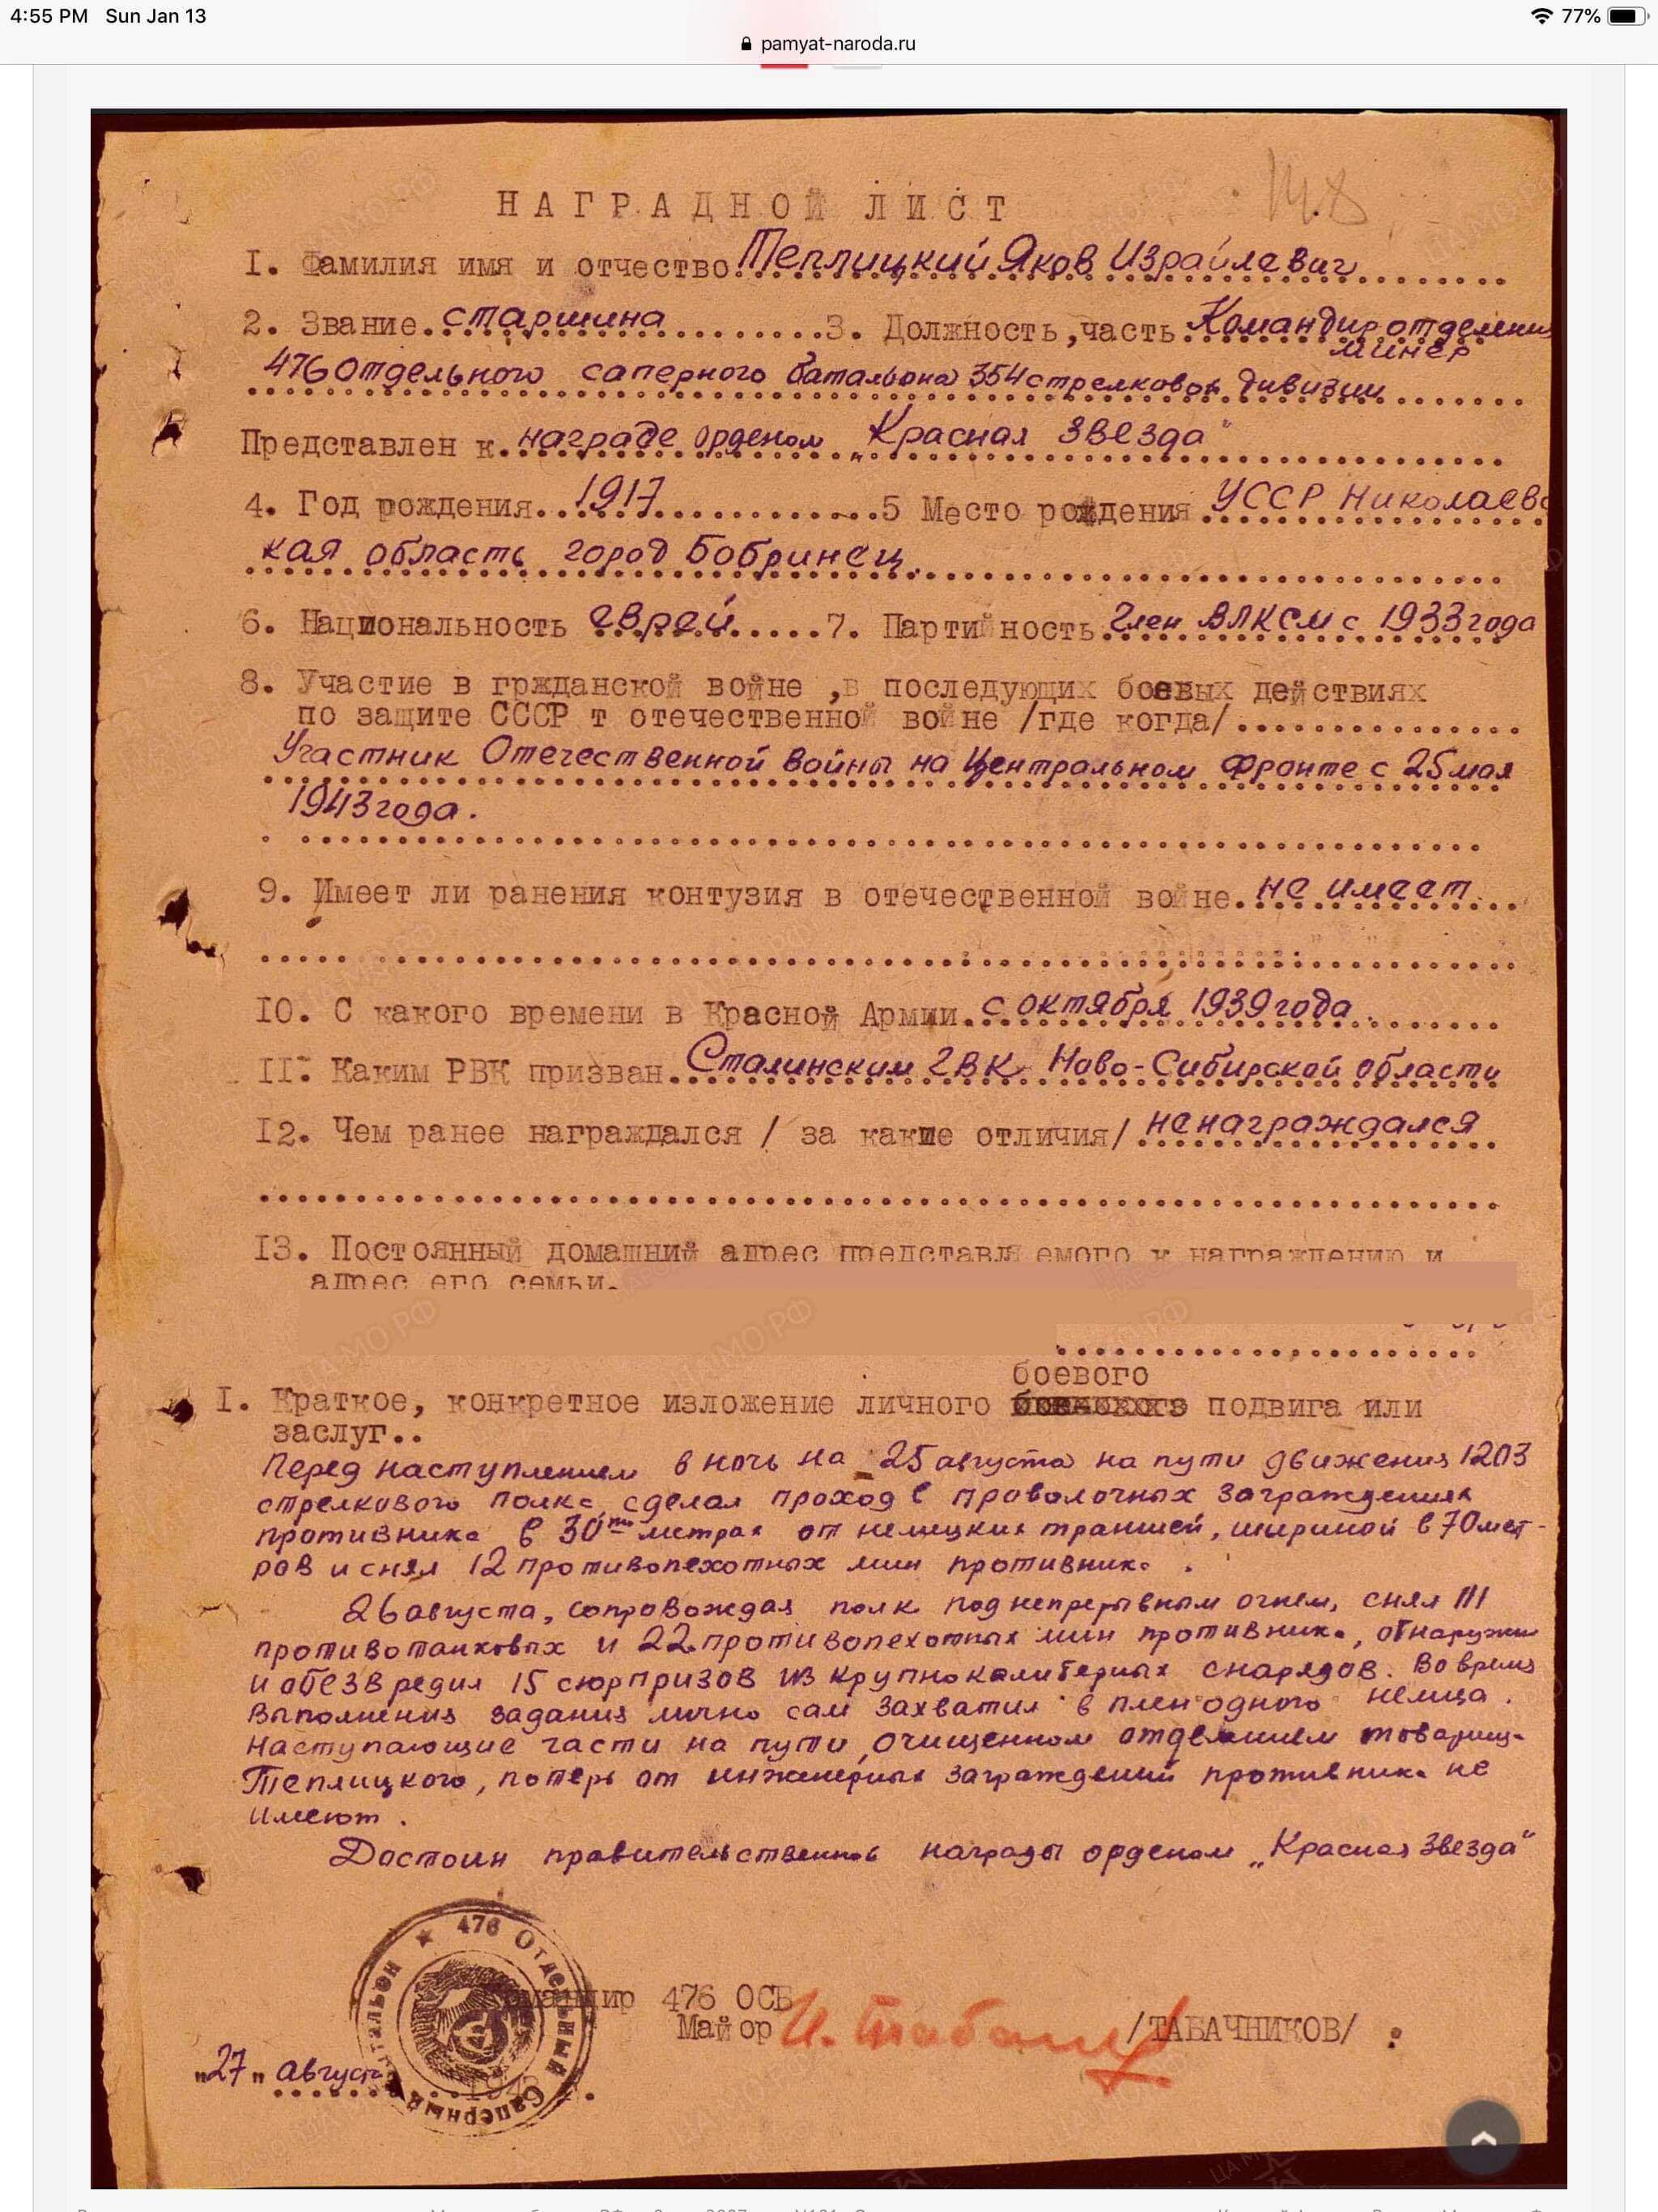 4:55 PM Sun Jan 13
77%
pamyat-naroda.ru
НАГРАДНОЙ ЛИСТ
I. Фамилия имя и отчество Теплицкий Яков Израйлевич
2. Звание старшина 3. Должность,часть Командир отделения
минер
476 отдельного саперного батальона 354 стрелковой дивизии
Представлен к награде орденом „Красная Звезда"
4. Год рождения 1917 5 Место рождения УССР Николаевс
кая область город Бобринец.
6. Национальность еврей 7. Партийность член ВЛКСМ с 1933 года
8. Участие в гржданской войне ,в последующих боевых действиях
по защите СССР т отечественной войне /где когда/
Участник Отечественной войны на Центральном фронте с 25 мая
1943 года.
9. Имеет ли ранения контузия в отечественной войне. не имеет.
IO. С какого времени в Красной Армии. с октября 1939 года
II. Каким РВК призван. Сталинским ГВК Ново-Сибирской области
I2. Чем ранее награждался / за какие отличия/ не награждался
I3. Постоянный домашний адрес представляемого к награждению и
адрес его семьи.
боевого
I. Краткое, конкретное изложение личного подвига или
заслуг..
Перед наступлением в ночь на 25 августа на пути движения 1203
стрелкового полка сделал проход в проволочных заграждениях
противника в 30ти метрах от немецких траншей, шириной в 70 мет-
ров и снял 12 противопехотных мин противника.
26 августа, сопровождая полк под непрерывным огнем, снял 111
противотанковых и 22 противопехотных мин противника, обнаружил
и обезвредил 15 сюрпризов из крупнокалиберных снарядов. Во время
выполнения задания лично сам захватил в плен одного немца.
Наступающие части на пути, очищенном отделением товарища
Теплицкого, потерь от инженерных заграждений противника не
имеют.
Достоин правительственной награды орденом „Красная Звезда"
476 Отдельный Саперный батальон
Командир 476 ОСБ
Майор /ТАБАЧНИКОВ/
„27" августа 194